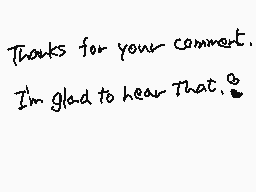 Thanks for your comment.
I'm glad to hear that.